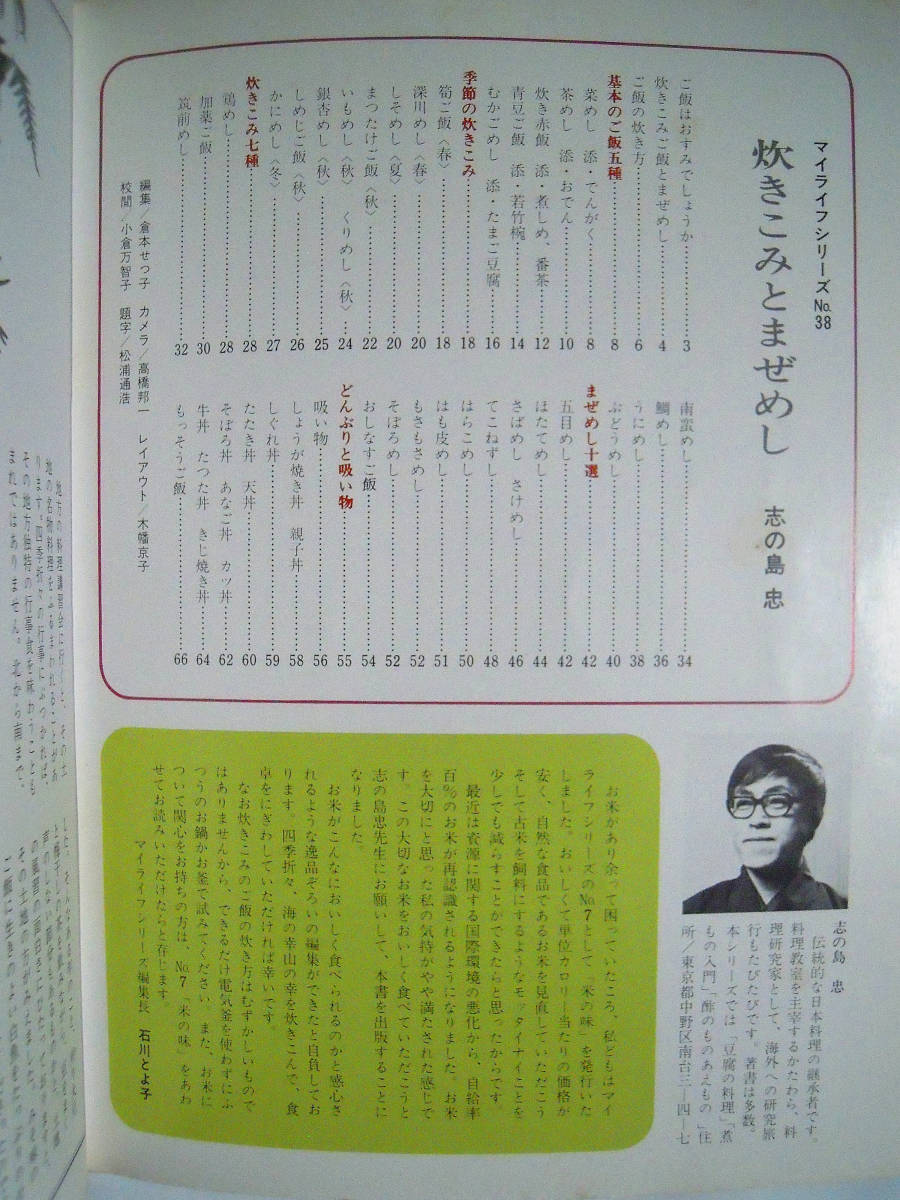 マイライフシリーズNo.38
炊きこみとまぜめし
志の島 忠
ご飯はおすみでしょうか……3
炊きこみご飯とまぜめし……4
ご飯の炊き方……6
基本のご飯五種……8
菜めし 添・でんがく……8
茶めし 添・おでん……10
炊き赤飯 添・煮しめ、番茶……12
青豆ご飯 添・若竹椀……14
むかごめし 添・たまご豆腐……16
季節の炊きこみ……18
筍ご飯〈春〉……18
深川めし〈春〉……20
しそめし〈夏〉……20
まつたけご飯〈秋〉……22
いもめし〈秋〉 くりめし〈秋〉……24
銀杏めし〈秋〉……25
しめじご飯〈秋〉……26
かにめし〈冬〉……27
炊きこみ七種……28
鶏めし……28
加薬ご飯……30
筑前めし……32
南蛮めし……34
鯛めし……36
うにめし……38
ぶどうめし……40
まぜめし十選……42
五目めし……42
ほたてめし……44
さばめし さけめし……46
てこねずし……48
はらこめし……50
はも皮めし……51
もさもさめし……52
そぼろめし……52
おしなすご飯……54
どんぶりと吸い物……55
吸い物……56
しょうが焼き丼 親子丼……58
しぐれ丼……59
たたき丼 天丼……60
そぼろ丼 あなご丼 カツ丼……62
牛丼 たつた丼 きじ焼き丼……64
もっそうご飯……66
編集/倉本せつ子 カメラ/高橋邦一 レイアウト/木幡京子
校閲/小倉万智子 題字/松浦通浩
志の島 忠
伝統的な日本料理の継承者です。
料理教室を主宰するかたわら、料
理研究家として、海外への研究旅
行もたびたびです。著書は多数。
本シリーズでは「豆腐の料理」「煮
もの入門」「酢のものあえもの」住
所/東京都中野区南台三—四—七
お米があり余って困っていたころ、私どもはマイ
ライフシリーズのNo.7として「米の味」を発行いた
しました。おいしくて単位カロリー当たりの価格が
安く、自然な食品であるお米を見直していただこう
そして古米を飼料にするようなモッタイナイことを
少しでも減らすことができたらと思ったからです。
最近は資源に関する国際環境の悪化から、自給率
百%のお米が再認識されるようになりました。お米
を大切にと思った私の気持がやや満たされた感じで
す。この大切なお米をおいしく食べていただこうと
志の島忠先生にお願いして、本書を出版することに
なりました。
お米がこんなにおいしく食べられるのかと感心さ
れるような逸品ぞろいの編集ができたと自負してお
ります。四季折々、海の幸山の幸を炊きこんで、食
卓をにぎわしていただければ幸いです。
なお炊きこみのご飯の炊き方はむずかしいもので
はありませんから、できるだけ電気釜を使わずにふ
つうのお鍋かお釜で試みてください。また、お米に
ついて関心をお持ちの方は、No.7「米の味」をあわ
せてお読みいただけたらと存じます。
マイライフシリーズ編集長 石川とよ子
地方の料理講習会に行くと、その土
地の名物料理をふるまわれることがあ
ります。四季折々の行事にぶつかれば、
その地方独特の行事食を味わうことも
まれではありません。北から南まで、